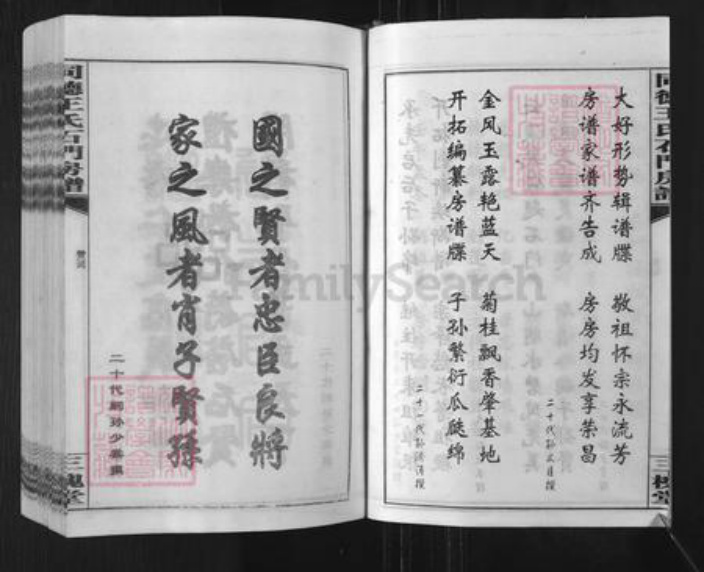 同德王氏石門房譜
三槐堂
大好形势辑谱牒 敬祖怀宗永流芳
房谱家谱齐告成 房房均发享荣昌
金风玉露艳蓝天 菊桂飘香肇基地
开拓编纂房谱牒 子孙繁衍瓜瓞绵
國之賢者忠臣良將
家之風者肖子賢孫
二十代嗣孙少
同德王氏石門房譜
三槐堂
FamilySearch